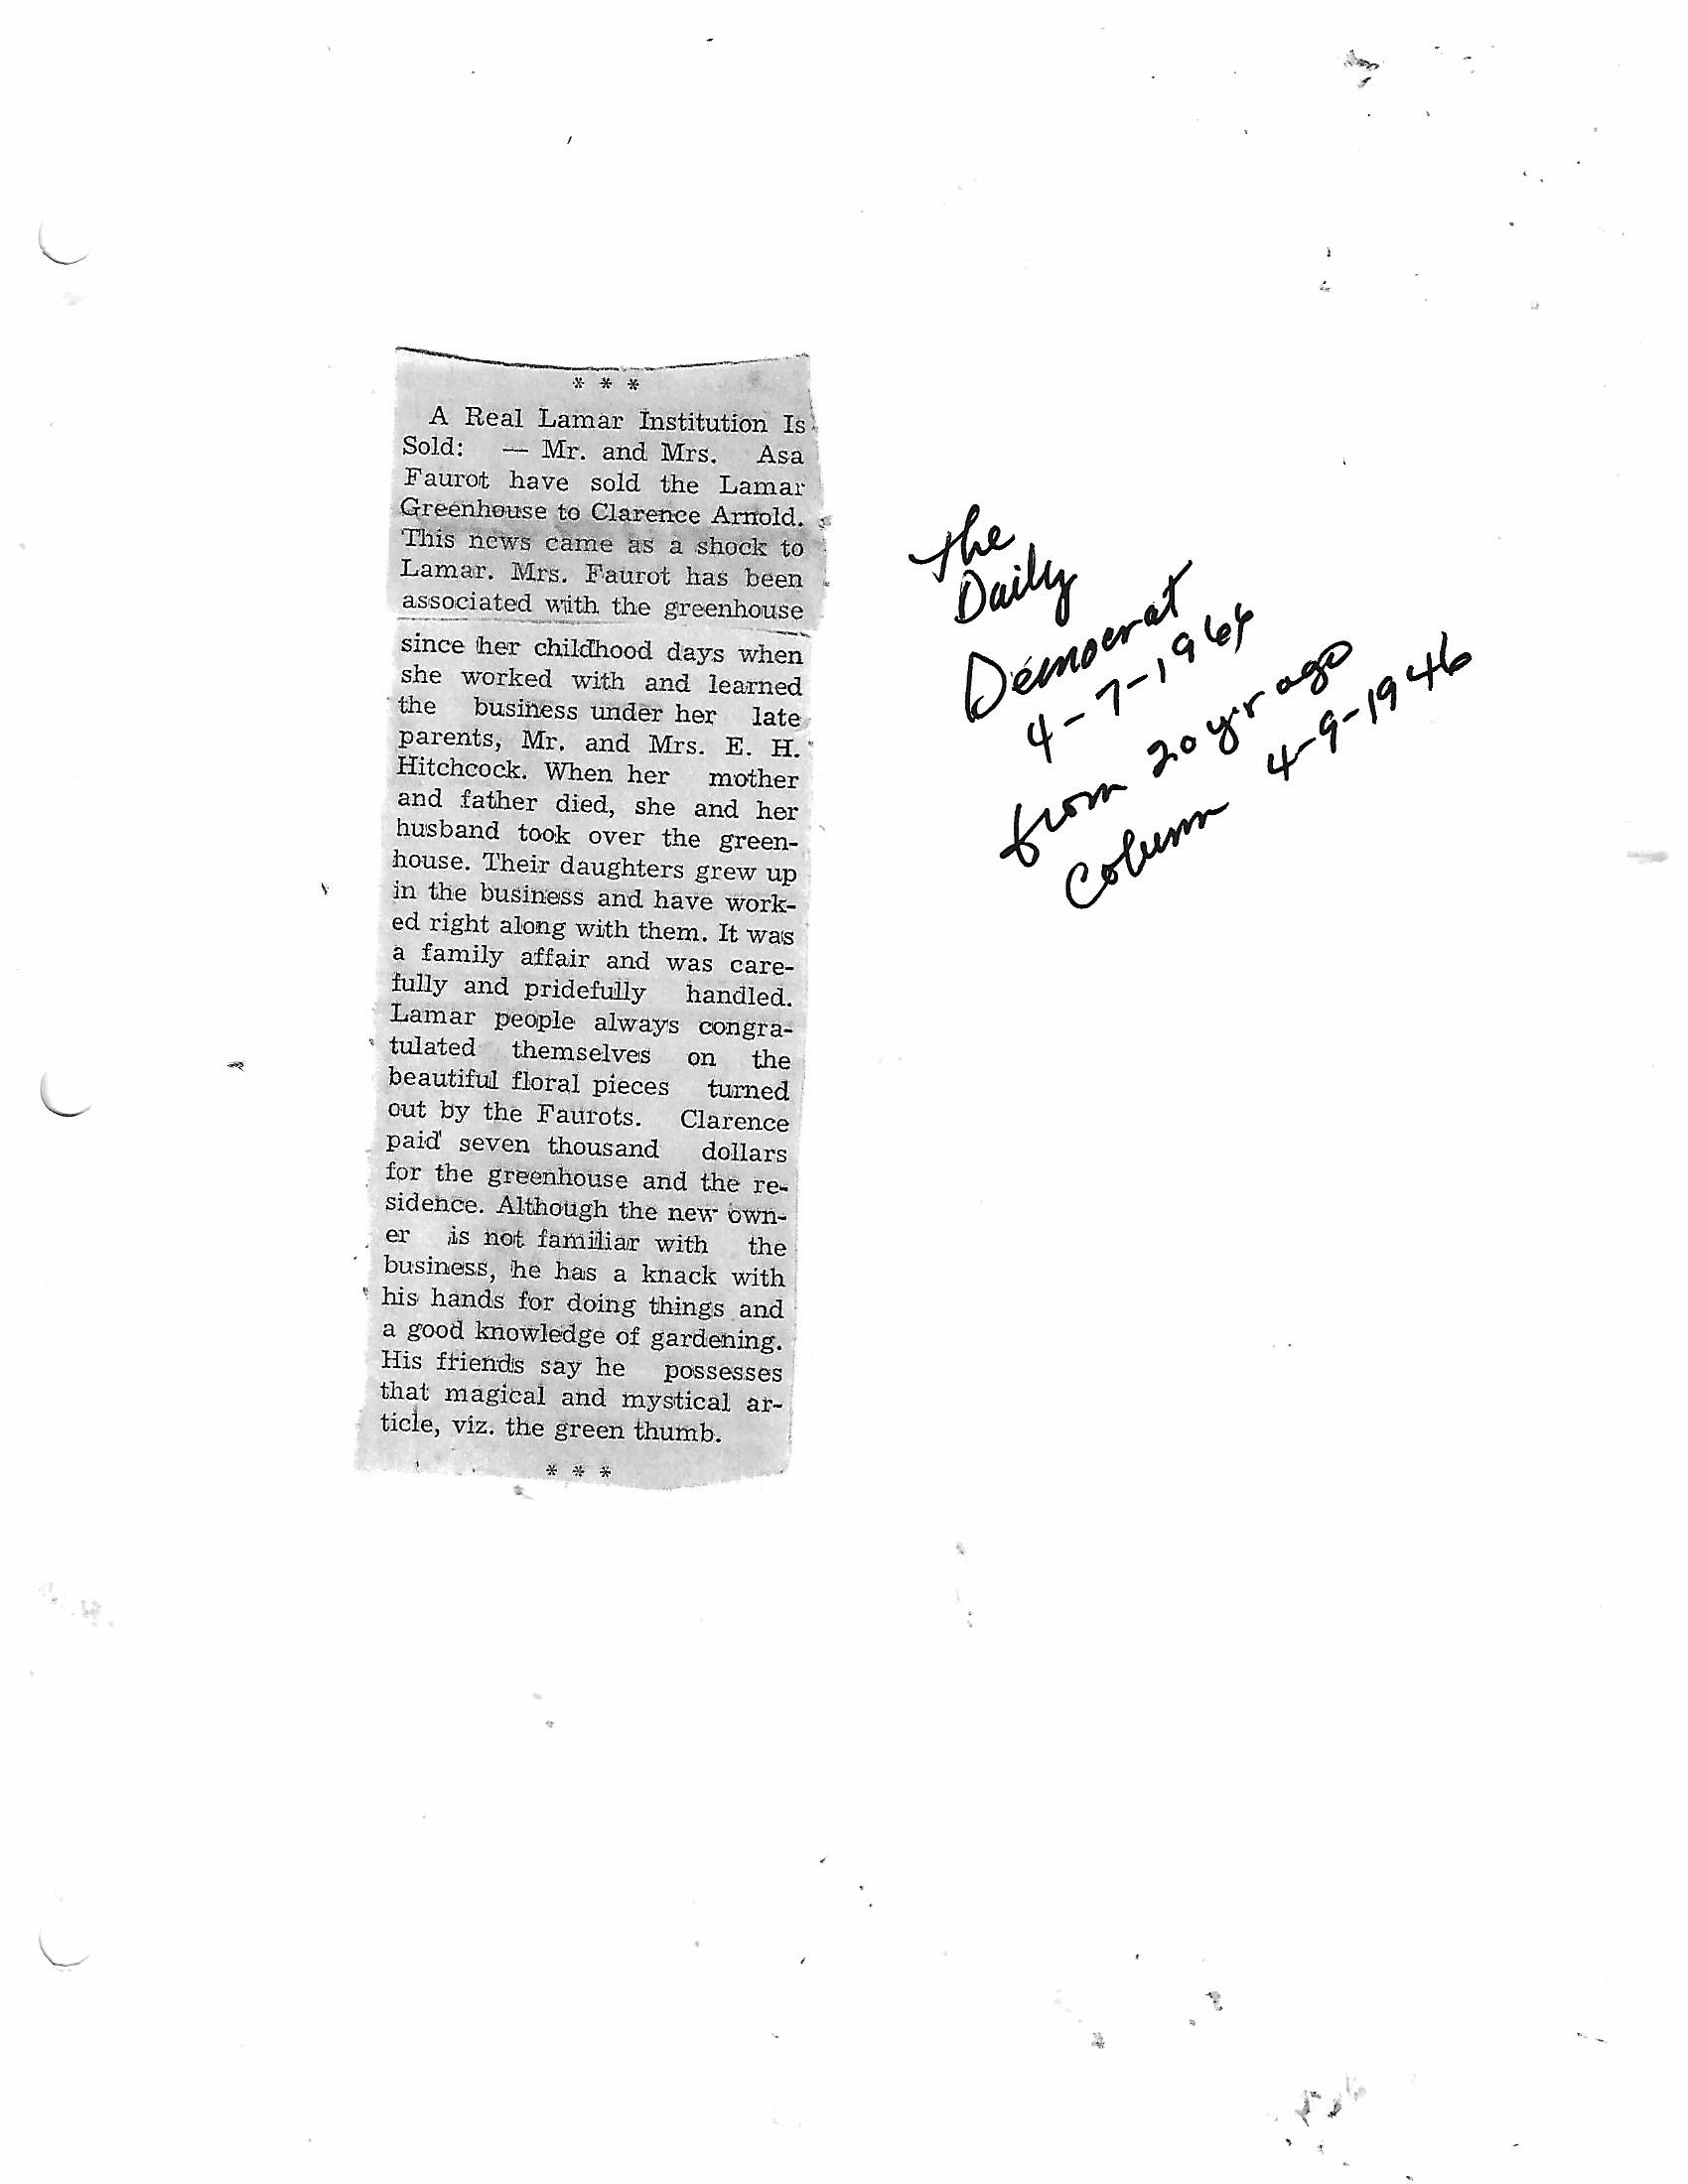 * * *
A Real Lamar Institution Is
Sold: — Mr. and Mrs. Asa
Faurot have sold the Lamar
Greenhouse to Clarence Arnold.
This news came as a shock to
Lamar. Mrs. Faurot has been
associated with the greenhouse
since her childhood days when
she worked with and learned
the business under her late
parents, Mr. and Mrs. E. H.
Hitchcock. When her mother
and father died, she and her
husband took over the green-
house. Their daughters grew up
in the business and have work-
ed right along with them. It was
a family affair and was care-
fully and pridefully handled.
Lamar people always congra-
tulated themselves on the
beautiful floral pieces turned
out by the Faurots. Clarence
paid seven thousand dollars
for the greenhouse and the re-
sidence. Although the new own-
er is not familiar with the
business, he has a knack with
his hands for doing things and
a good knowledge of gardening.
His friends say he possesses
that magical and mystical ar-
ticle, viz. the green thumb.
* * *
the
Daily
Democrat
4-7-1964
from 20 yr ago
column 4-9-1946